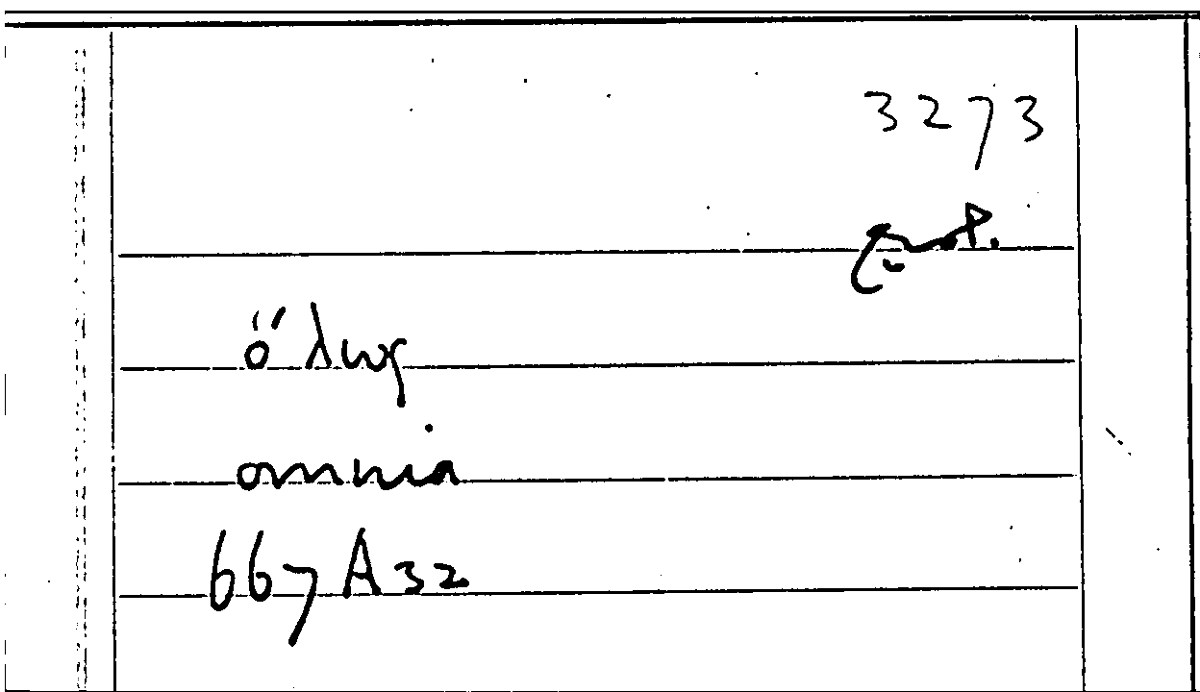 3273
ὅλως
omnia
667A32